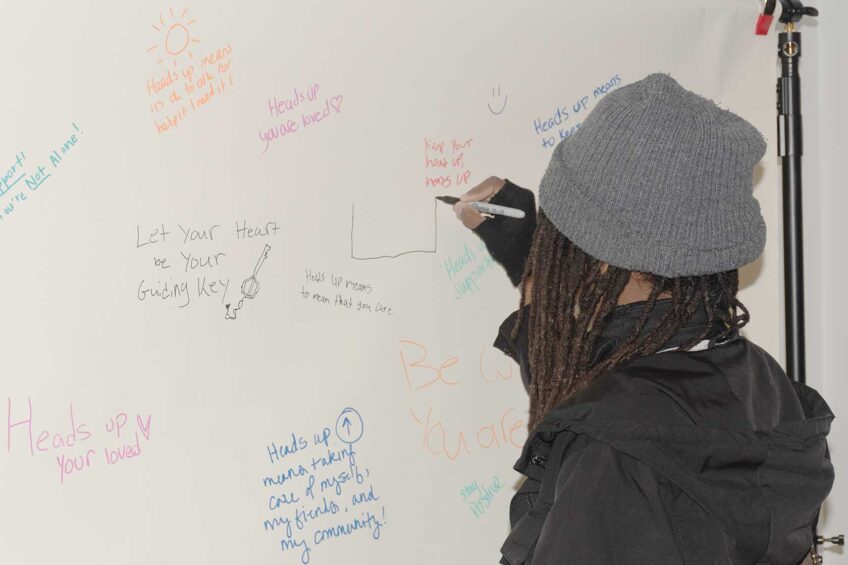 Heads up means
it's ok to ask for
help if I need it!
Heads up
you are loved
Heads up means
to keep
Keep Your
heat up,
heads up
You're Not Alone!
Let Your Heart
be Your
Guiding Key
Heads up means
to mean that you care.
"Heads u
Support
Be
You are
Heads up
your loved
Heads up
means taking
care of myself,
my friends, and
my community!
stay
Positive